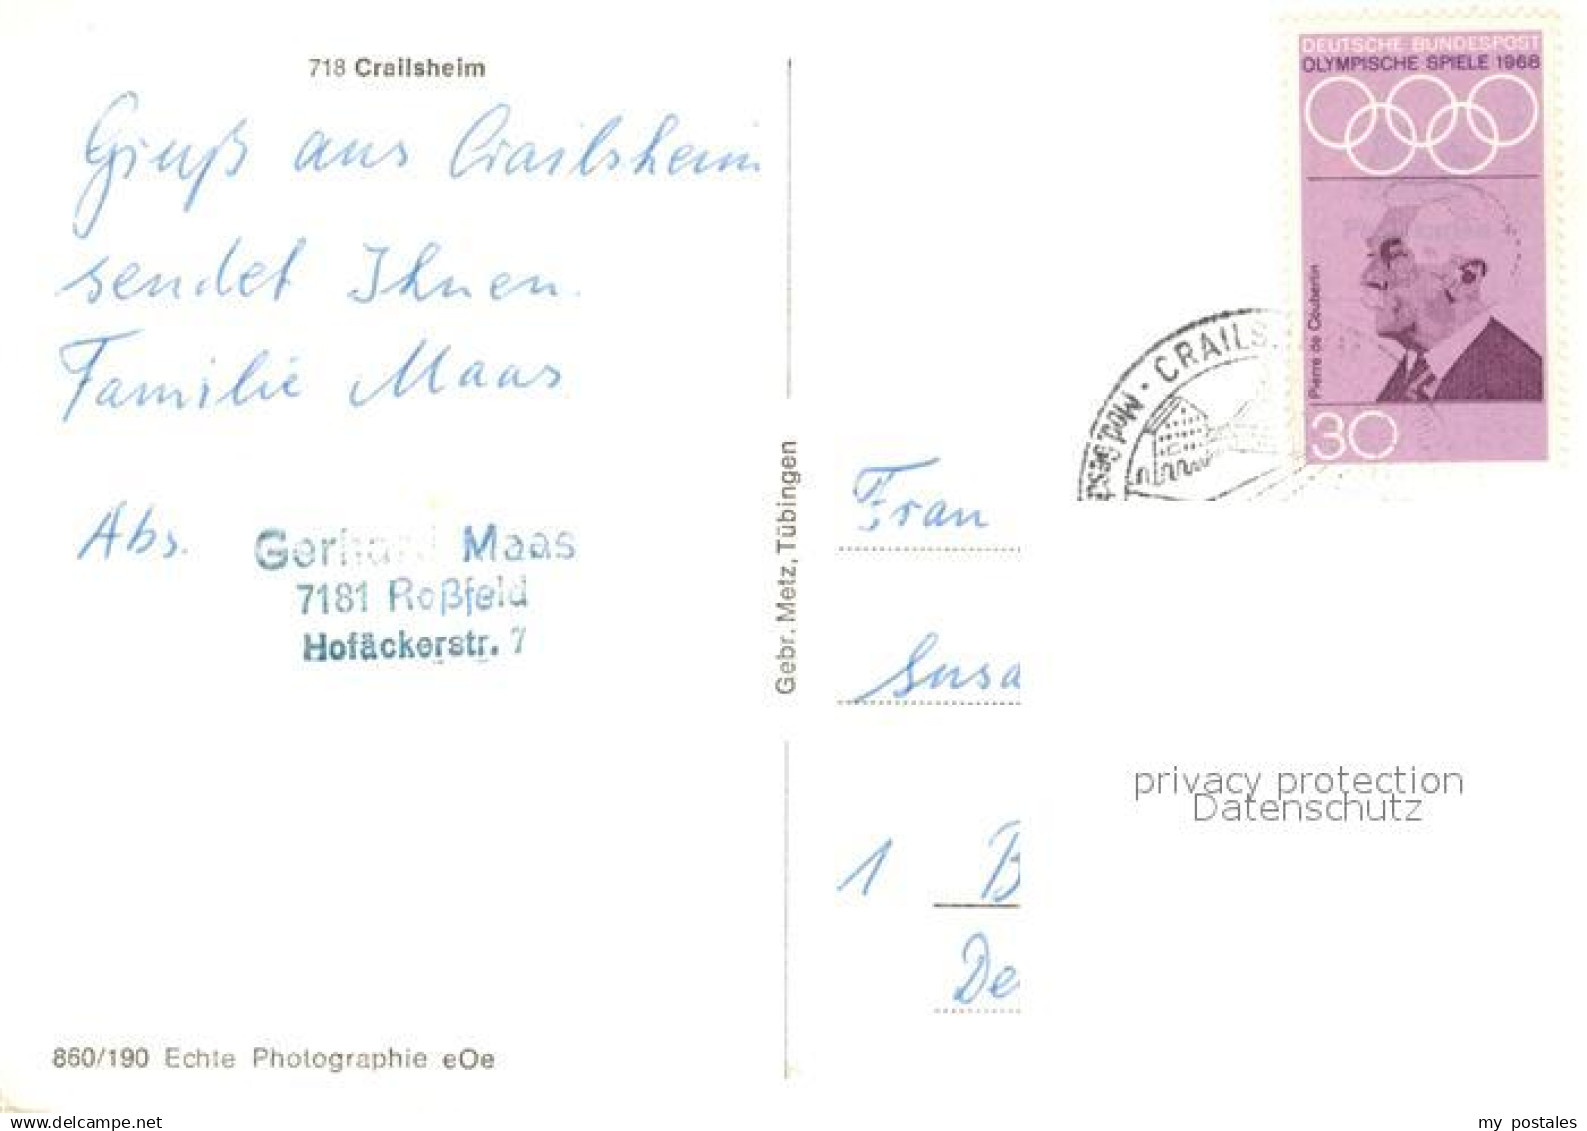 718 Crailsheim
Gruß aus Crailsheim
sendet Ihnen
Familie Maas
Abs.
Gerhard Maas
7181 Roßfeld
Hofäckerstr. 7
860/190 Echte Photographie eOe
Gebr. Metz, Tübingen
DEUTSCHE BUNDESPOST
OLYMPISCHE SPIELE 1968
Pierre de Coubertin
30
CRAILS
Mod. Gesc
Frau
Susa
1 B
De
privacy protection
Datenschutz
www.delcampe.net
my_postales